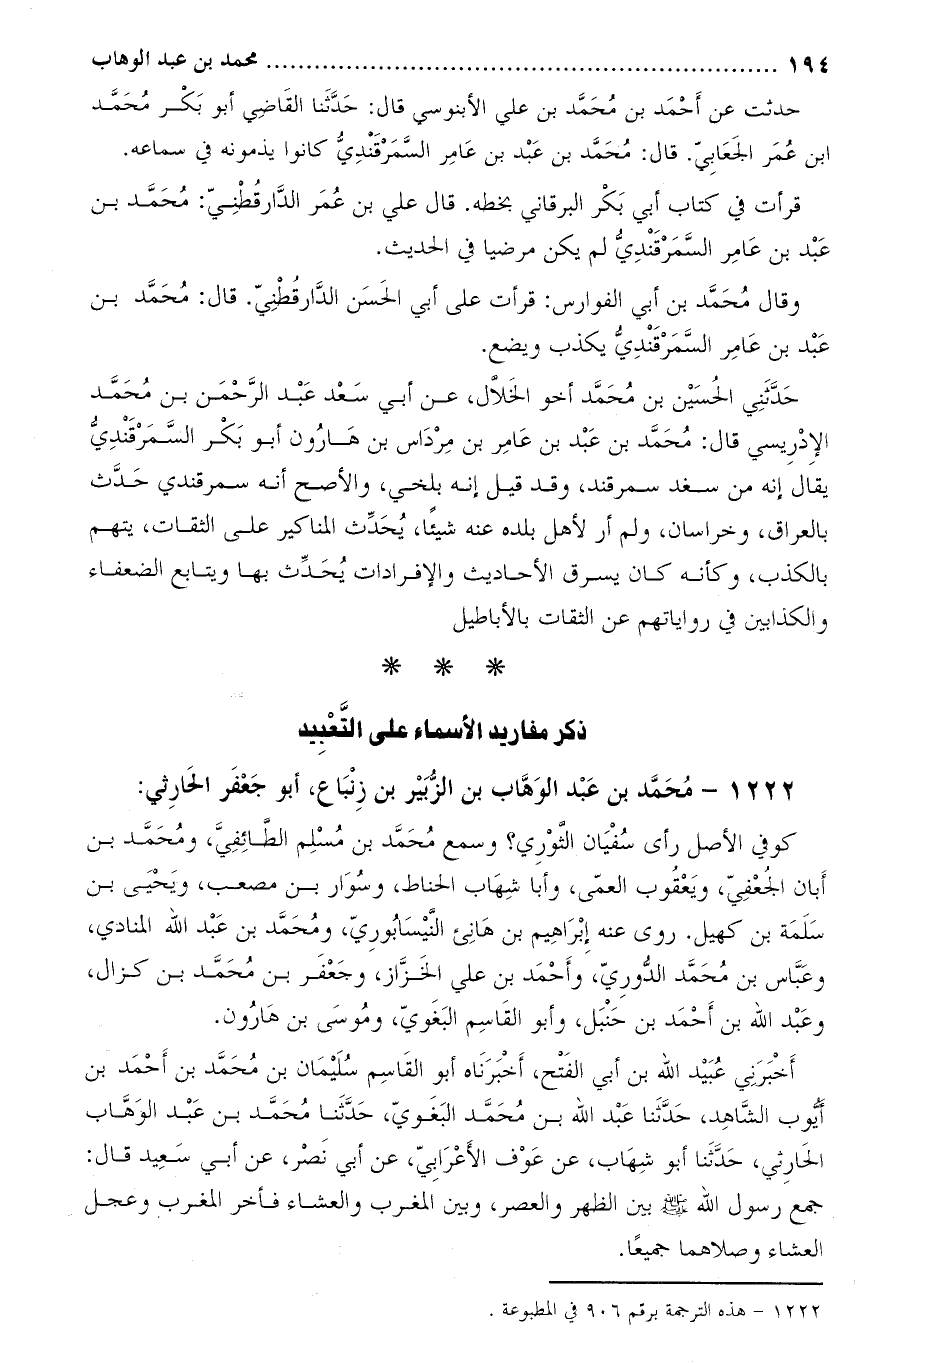 ١٩٤ ................................................................ محمد بن عبد الوهاب
حدثت عن أَحْمَد بن مُحَمَّد بن علي الأبنوسي قال: حَدَّثَنا القَاضِي أبو بَكْر مُحَمَّد
ابن عُمَر الجَعَابِيّ. قال: مُحَمَّد بن عَبْد بن عَامِر السَّمَرْقَنْدِيُّ كانوا يذمونه في سماعه.
قرأت في كتاب أبي بَكْر البرقاني بخطه. قال علي بن عُمَر الدَّارقُطْنِيّ: مُحَمَّد بن
عَبْد بن عَامِر السَّمَرْقَنْدِيُّ لم يكن مرضيا في الحديث.
وقال مُحَمَّد بن أبي الفوارس: قرأت على أبي الحَسَن الدَّارقُطْنِيّ. قال: مُحَمَّد بن
عَبْد بن عَامِر السَّمَرْقَنْدِيُّ يكذب ويضع.
حَدَّثَنِي الحُسَيْن بن مُحَمَّد أخو الخَلاَّل، عن أبي سَعْد عَبْد الرَّحْمَن بن مُحَمَّد
الإدْرِيسي قال: مُحَمَّد بن عَبْد بن عَامِر بن مِرْدَاس بن هَارُون أبو بَكْر السَّمَرْقَنْدِيُّ
يقال إنه من سغد سمرقند، وقد قيل إنه بلخي، والأصح أنه سمرقندي حَدَّث
بالعراق، وخراسان، ولم أر لأهل بلده عنه شيئًا، يُحَدِّث المناكير على الثقات، يتهم
بالكذب، وكأنه كان يسرق الأحاديث والإفرادات يُحَدِّث بها ويتابع الضعفاء
والكذابين في رواياتهم عن الثقات بالأباطيل
* * *
ذكر مفاريد الأسماء على التَّعْبِيد
١٢٢٢ - مُحَمَّد بن عَبْد الوَهَّاب بن الزُّبَيْر بن زِنْبَاع، أبو جَعْفَر الحَارِثي:
كوفي الأصل رأى سُفْيَان الثَّوْرِي؟ وسمع مُحَمَّد بن مُسْلِم الطَّائِفِيَّ، ومُحَمَّد بن
أَبان الجُعْفِيّ، ويَعْقُوب العمّى، وأبا شِهَاب الحناط، وسُوَار بن مصعب، ويَحْيَى بن
سَلَمَة بن كهيل. روى عنه إبْرَاهِيم بن هَانِئ النَّيْسَابُوريّ، ومُحَمَّد بن عَبْد الله المنادي،
وعَبَّاس بن مُحَمَّد الدُّوريّ، وأَحْمَد بن علي الخَزَّاز، وجَعْفَر بن مُحَمَّد بن كزال،
وعَبْد الله بن أَحْمَد بن حَنْبَل، وأبو القَاسِم البَغَويّ، ومُوسَى بن هَارُون.
أَخْبَرَنِي عُبَيْد الله بن أبي الفَتْح، أَخْبَرَنَاه أبو القَاسِم سُلَيْمَان بن مُحَمَّد بن أَحْمَد بن
أَيُّوب الشَّاهِد، حَدَّثَنا عَبْد الله بن مُحَمَّد البَغَويّ، حَدَّثَنا مُحَمَّد بن عَبْد الوَهَّاب
الحَارِثي، حَدَّثَنا أبو شِهَاب، عن عَوْف الأَعْرَابِيّ، عن أبي نَصْر، عن أبي سَعِيد قال:
جمع رسول الله ﷺ بين الظهر والعصر، وبين المغرب والعشاء فأخر المغرب وعجل
العشاء وصلاهما جميعًا.
١٢٢٢ - هذه الترجمة برقم ٩٠٦ في المطبوعة .